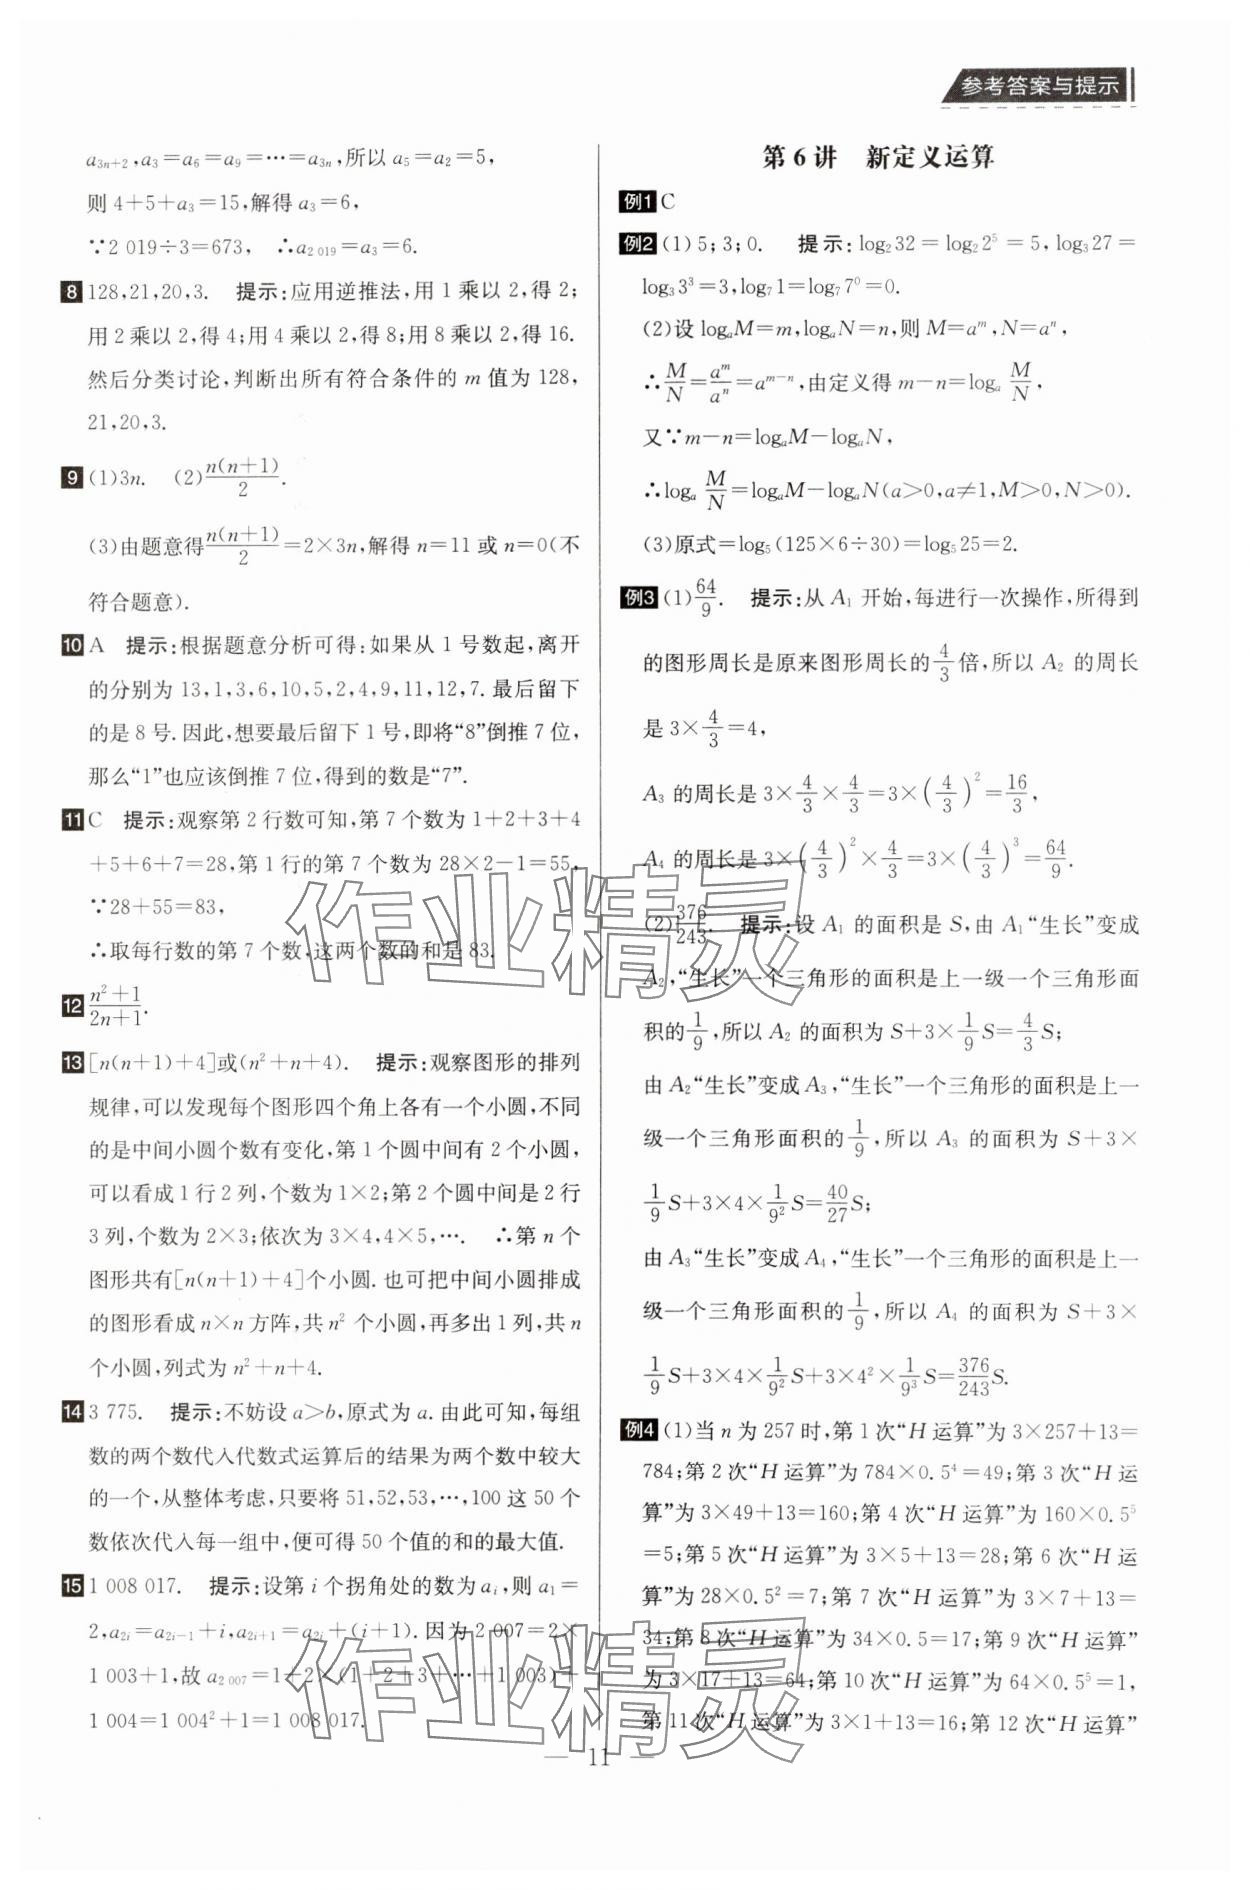 参考答案与提示
a₃ₙ₊₂,a₃=a₆=a₉=…=a₃ₙ,所以 a₅=a₂=5,
则 4+5+a₃=15,解得 a₃=6,
∵2 019÷3=673, ∴a₂ ₀₁₉=a₃=6.
8 128,21,20,3. 提示:应用逆推法,用 1 乘以 2,得 2;
用 2 乘以 2,得 4;用 4 乘以 2,得 8;用 8 乘以 2,得 16.
然后分类讨论,判断出所有符合条件的 m 值为 128,
21,20,3.
9 (1)3n. (2)n(n+1)/2.
(3)由题意得n(n+1)/2=2×3n,解得 n=11 或 n=0(不
符合题意).
10 A 提示:根据题意分析可得:如果从 1 号数起,离开
的分别为 13,1,3,6,10,5,2,4,9,11,12,7. 最后留下
的是 8 号. 因此,想要最后留下 1 号,即将“8”倒推 7 位,
那么“1”也应该倒推 7 位,得到的数是“7”.
11 C 提示:观察第 2 行数可知,第 7 个数为 1+2+3+4
+5+6+7=28,第 1 行的第 7 个数为 28×2-1=55,
∵28+55=83,
∴取每行数的第 7 个数,这两个数的和是 83.
12 (n²+1)/(2n+1).
13 [n(n+1)+4]或(n²+n+4). 提示:观察图形的排列
规律,可以发现每个图形四个角上各有一个小圆,不同
的是中间小圆个数有变化,第 1 个圆中间有 2 个小圆,
可以看成 1 行 2 列,个数为 1×2;第 2 个圆中间是 2 行
3 列,个数为 2×3;依次为 3×4,4×5,…. ∴第 n 个
图形共有[n(n+1)+4]个小圆. 也可把中间小圆排成
的图形看成 n×n 方阵,共 n² 个小圆,再多出 1 列,共 n
个小圆,列式为 n²+n+4.
14 3 775. 提示:不妨设 a>b,原式为 a. 由此可知,每组
数的两个数代入代数式运算后的结果为两个数中较大
的一个,从整体考虑,只要将 51,52,53,…,100 这 50 个
数依次代入每一组中,便可得 50 个值的和的最大值.
15 1 008 017. 提示:设第 i 个拐角处的数为 aᵢ,则 a₁=
2,a₂ᵢ=a₂ᵢ₋₁+i,a₂ᵢ₊₁=a₂ᵢ+(i+1). 因为 2 007=2×
1 003+1,故 a₂ ₀₀₇=1+2×(1+2+3+…+1 003)+
1 004=1 004²+1=1 008 017.
第 6 讲 新定义运算
例1 C
例2 (1) 5; 3; 0. 提示:log₂32=log₂2⁵=5,log₃27=
log₃3³=3,log₇1=log₇7⁰=0.
(2)设 logₐM=m,logₐN=n,则 M=aᵐ,N=aⁿ,
∴M/N=aᵐ/aⁿ=aᵐ⁻ⁿ,由定义得 m-n=logₐ M/N,
又∵m-n=logₐM-logₐN,
∴logₐ M/N=logₐM-logₐN(a>0,a≠1,M>0,N>0).
(3)原式=log₅(125×6÷30)=log₅25=2.
例3 (1)64/9. 提示:从 A₁ 开始,每进行一次操作,所得到
的图形周长是原来图形周长的4/3倍,所以 A₂ 的周长
是 3×4/3=4,
A₃ 的周长是 3×4/3×4/3=3×(4/3)²=16/3,
A₄ 的周长是 3×(4/3)²×4/3=3×(4/3)³=64/9.
(2)376/243. 提示:设 A₁ 的面积是 S,由 A₁“生长”变成
A₂,“生长”一个三角形的面积是上一级一个三角形面
积的1/9,所以 A₂ 的面积为 S+3×1/9S=4/3S;
由 A₂“生长”变成 A₃,“生长”一个三角形的面积是上一
级一个三角形面积的1/9,所以 A₃ 的面积为 S+3×
1/9S+3×4×1/9²S=40/27S;
由 A₃“生长”变成 A₄,“生长”一个三角形的面积是上一
级一个三角形面积的1/9,所以 A₄ 的面积为 S+3×
1/9S+3×4×1/9²S+3×4²×1/9³S=376/243S.
例4 (1)当 n 为 257 时,第 1 次“H 运算”为 3×257+13=
784;第 2 次“H 运算”为 784×0.5⁴=49;第 3 次“H 运
算”为 3×49+13=160;第 4 次“H 运算”为 160×0.5⁵
=5;第 5 次“H 运算”为 3×5+13=28;第 6 次“H 运
算”为 28×0.5²=7;第 7 次“H 运算”为 3×7+13=
34;第 8 次“H 运算”为 34×0.5=17;第 9 次“H 运算”
为 3×17+13=64;第 10 次“H 运算”为 64×0.5⁵=1,
第 11 次“H 运算”为 3×1+13=16;第 12 次“H 运算”
— 11 —
作业精灵
作业精灵